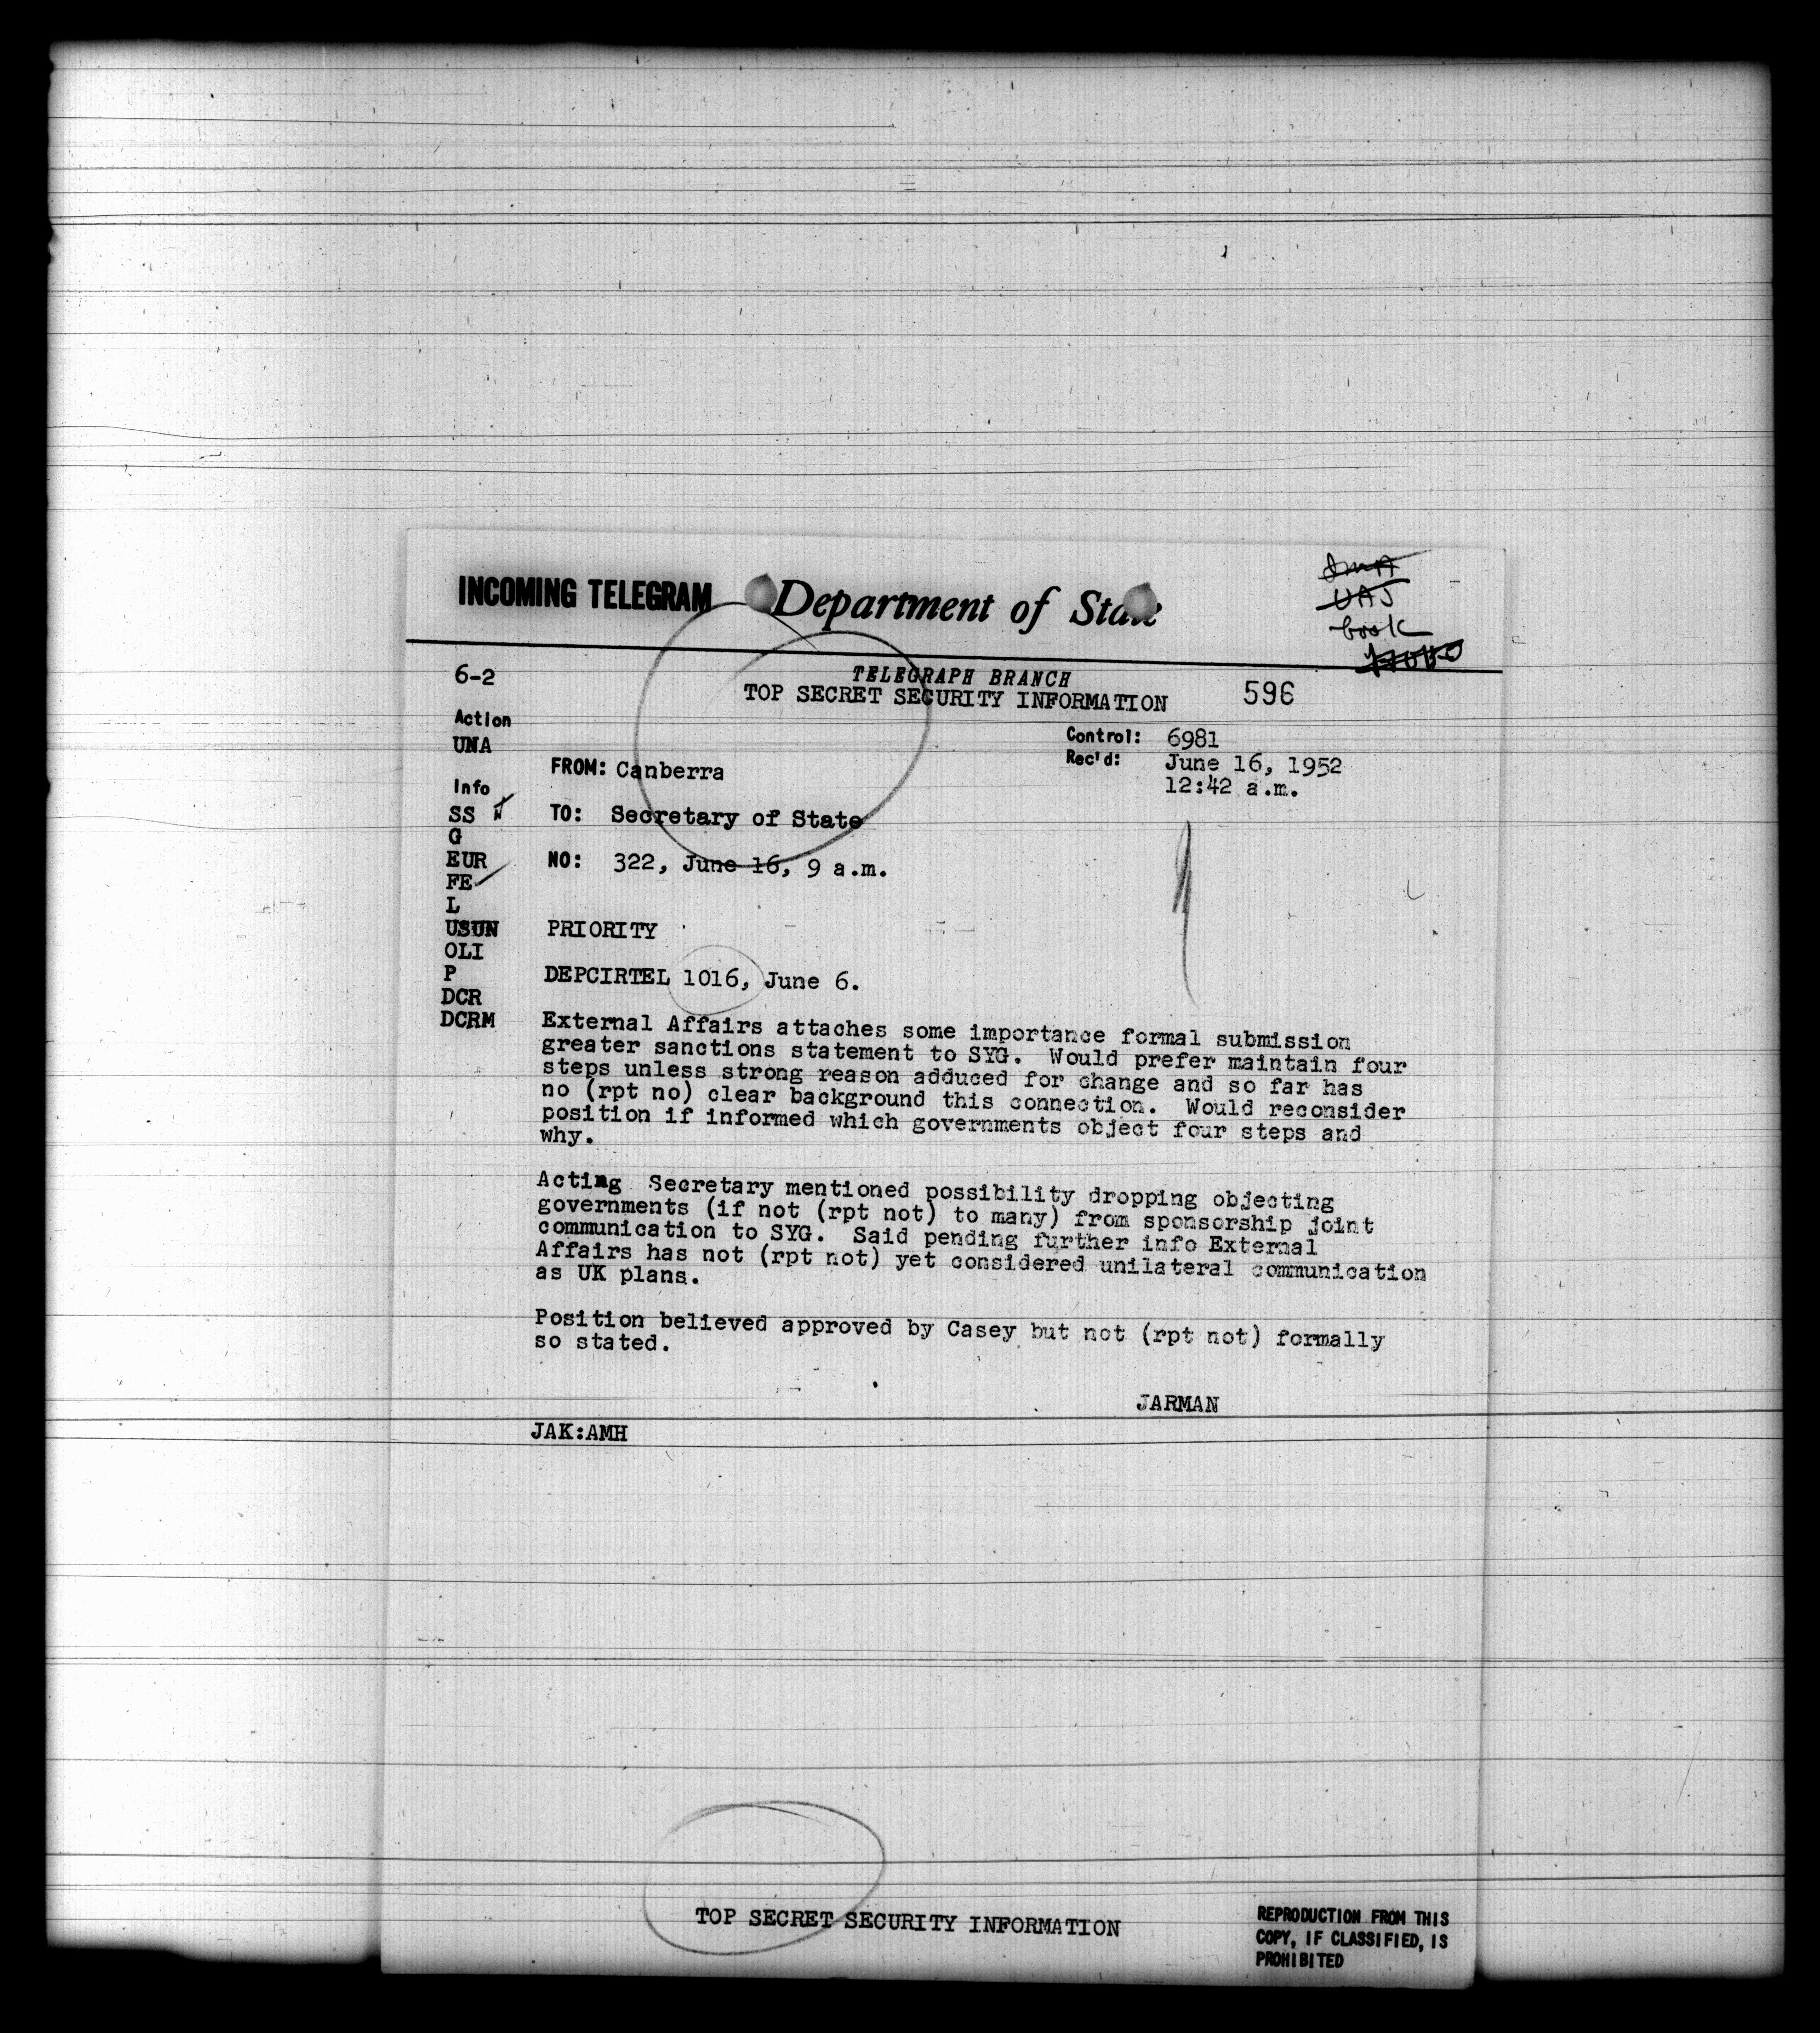 INCOMING TELEGRAM Department of State
UAJ
book
6-2
TELEGRAPH BRANCH
TOP SECRET SECURITY INFORMATION 596
Action
UNA
Control: 6981
Rec'd: June 16, 1952
12:42 a.m.
FROM: Canberra
Info
SS
TO: Secretary of State
G
EUR
NO: 322, June 16, 9 a.m.
FE
L
USUN
PRIORITY
OLI
P
DEPCIRTEL 1016, June 6.
DCR
DCRM
External Affairs attaches some importance formal submission
greater sanctions statement to SYG. Would prefer maintain four
steps unless strong reason adduced for change and so far has
no (rpt no) clear background this connection. Would reconsider
position if informed which governments object four steps and
why.
Acting Secretary mentioned possibility dropping objecting
governments (if not (rpt not) to many) from sponsorship joint
communication to SYG. Said pending further info External
Affairs has not (rpt not) yet considered unilateral communication
as UK plans.
Position believed approved by Casey but not (rpt not) formally
so stated.
JARMAN
JAK:AMH
TOP SECRET SECURITY INFORMATION
REPRODUCTION FROM THIS
COPY, IF CLASSIFIED, IS
PROHIBITED